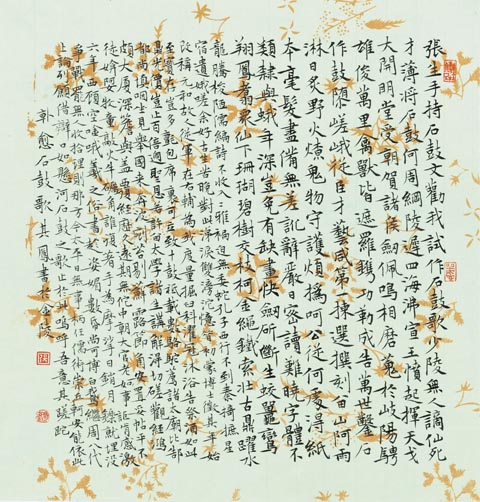 張生手持石鼓文勸我試作石鼓歌少陵無人謫仙死
才薄將石鼓何周綱陵遲四海沸宣王憤起揮天戈
大開明堂受朝賀諸侯劍佩鳴相磨蒐於岐陽騁
雄俊萬里禽獸皆遮羅鐫功勒成告萬世鑿石
作鼓隳嵯峨從臣才藝咸第一揀選撰刻留山阿雨
淋日炙野火燎鬼物守護煩撝呵公從何處得紙
本毫髮盡備無差訛辭嚴義密讀難曉字體不
類隸與蝌年深豈免有缺畫快劍斫斷生蛟鼉鸞
翔鳳翥眾仙下珊瑚碧樹交枝柯金繩鐵索壯古鼎躍水
龍騰梭陋儒編詩不收入二雅褊迫無委蛇孔子西行不到秦掎摭星
宿遺羲娥嗟余好古生苦晚對此涕淚雙滂沱憶昔初蒙博士徵其年始
改稱元和故人從軍在右輔為我度量掘臼科濯冠沐浴告祭酒如此
至寶存豈多氈包席裹可立致十鼓祇載數駱駝薦諸太廟比郜
鼎光價豈止百倍過聖恩若許留太學諸生講解得切磋觀經鴻
都尚填咽坐見舉國來奔波剜苔剔蘚露節角安置妥帖平不
頗大廈深簷與蓋覆經歷久遠期無佗中朝大官老於事詎肯感激
徒媕婀牧童敲火牛礪角誰復著手為摩挲日銷月鑠就埋沒
六年西顧空吟哦羲之俗書趁姿媚數紙尚可博白鵝繼周八代
爭戰罷無人收拾理則那方今太平日無事柄任儒術崇丘軻安能以此
上論列願借辯口如懸河石鼓之歌止於此嗚呼吾意其蹉跎
韓愈石鼓歌 其鳳書於金陵